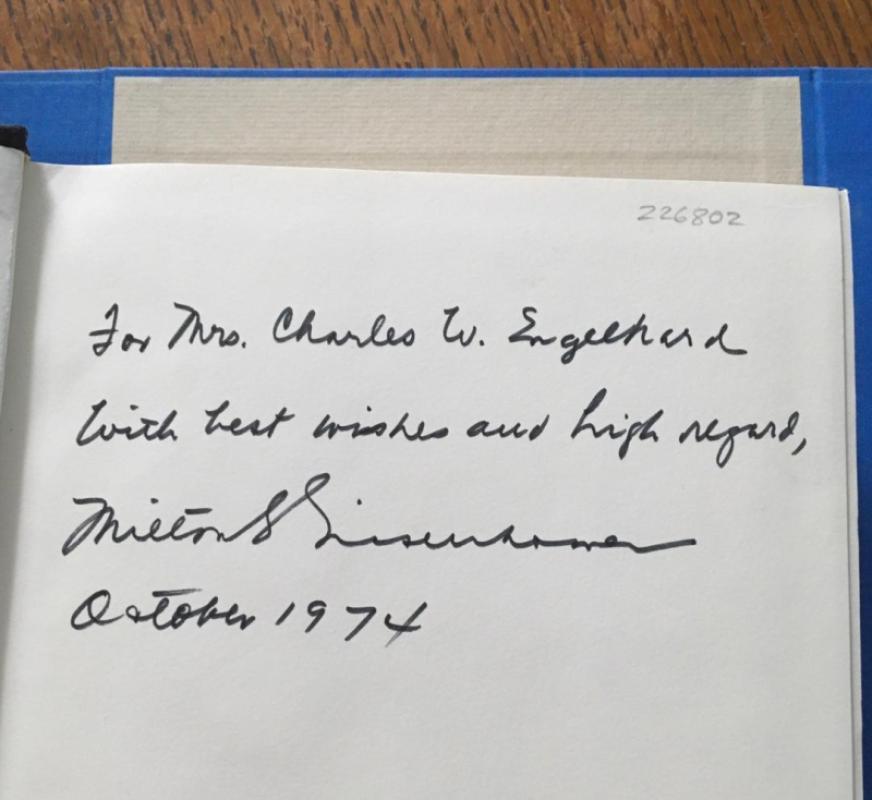 226802
For Mrs. Charles W. Engelhard
With best wishes and high regard,
Milton S Eisenhower
October 1974